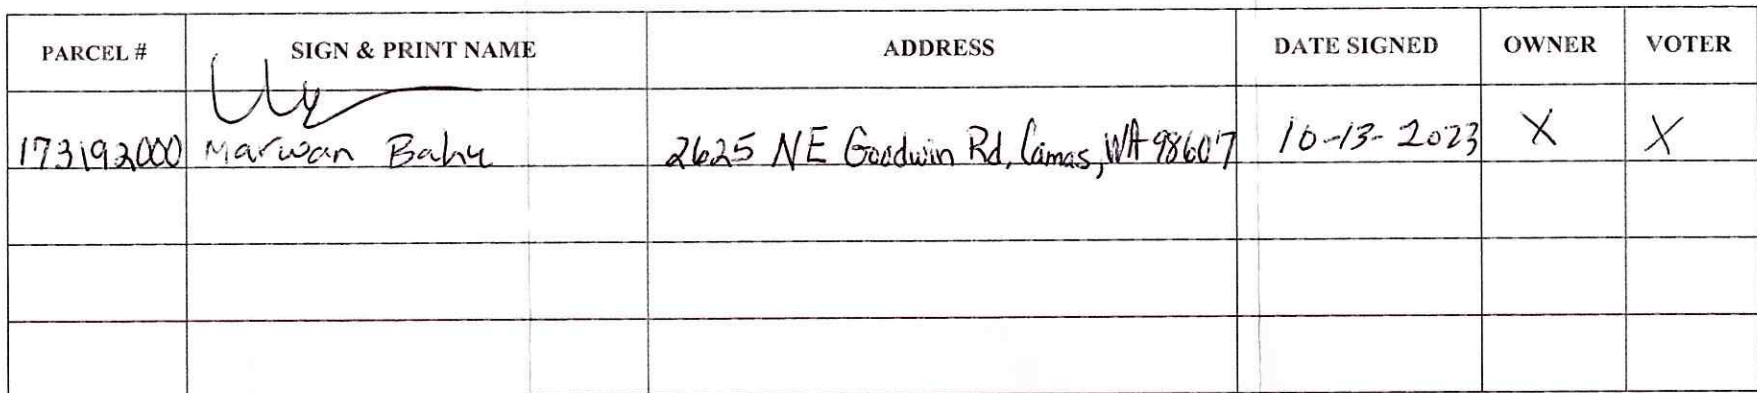 PARCEL # SIGN & PRINT NAME ADDRESS DATE SIGNED OWNER VOTER
173192000 Marwan Bahu 2625 NE Goodwin Rd, Camas, WA 98607 10-13-2023 X X